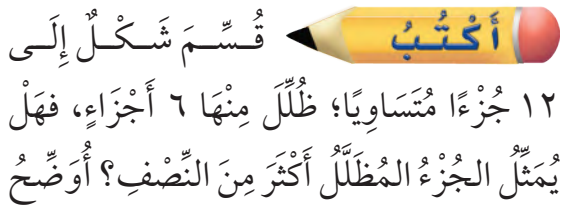 أَكْتُبُ قُسِّمَ شَكْلٌ إِلَى
١٢ جُزْءًا مُتَسَاوِيًا؛ ظُلِّلَ مِنْهَا ٦ أَجْزَاءٍ، فَهَلْ
يُمَثِّلُ الجُزْءُ المُظَلَّلُ أَكْثَرَ مِنَ النِّصْفِ؟ أُوَضِّحُ